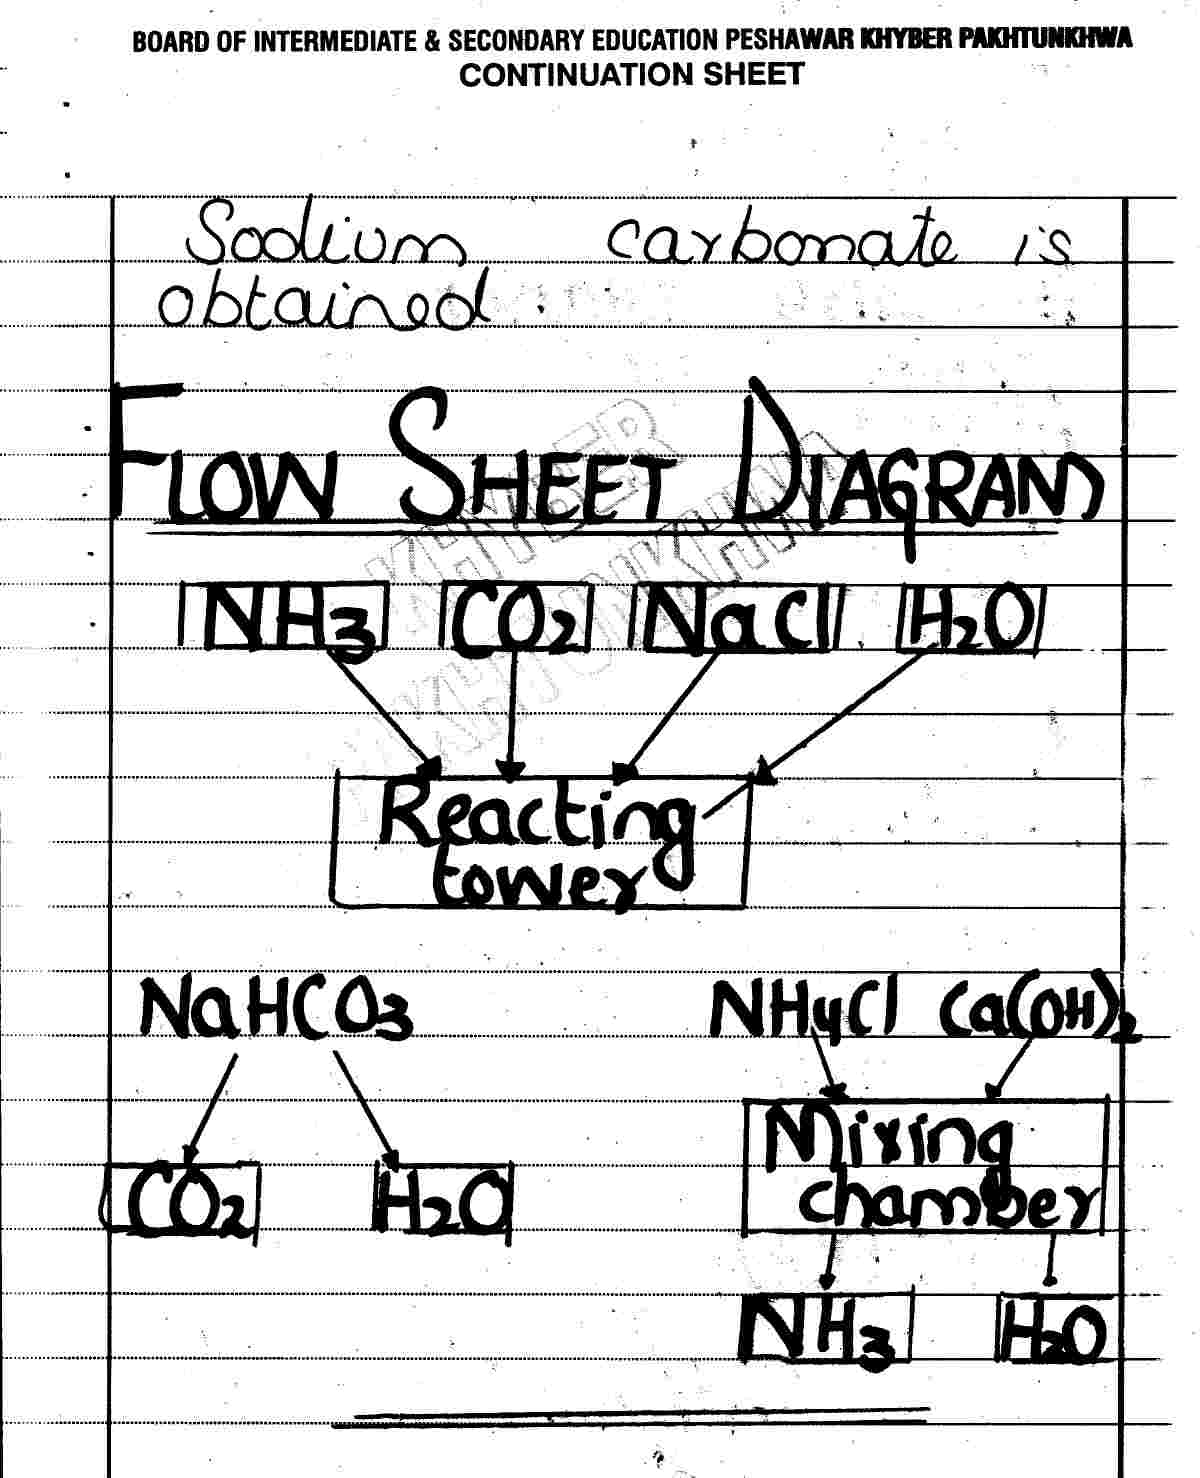 BOARD OF INTERMEDIATE & SECONDARY EDUCATION PESHAWAR KHYBER PAKHTUNKHWA
CONTINUATION SHEET
Sodium carbonate is
obtained.
FLOW SHEET DIAGRAM
KHYBER
PAKHTUNKHWA
NH3 CO2 NaCl H2O
Reacting
tower
NaHCO3 NH4Cl Ca(OH)2
Mixing
chamber
CO2 H2O
NH3 H2O